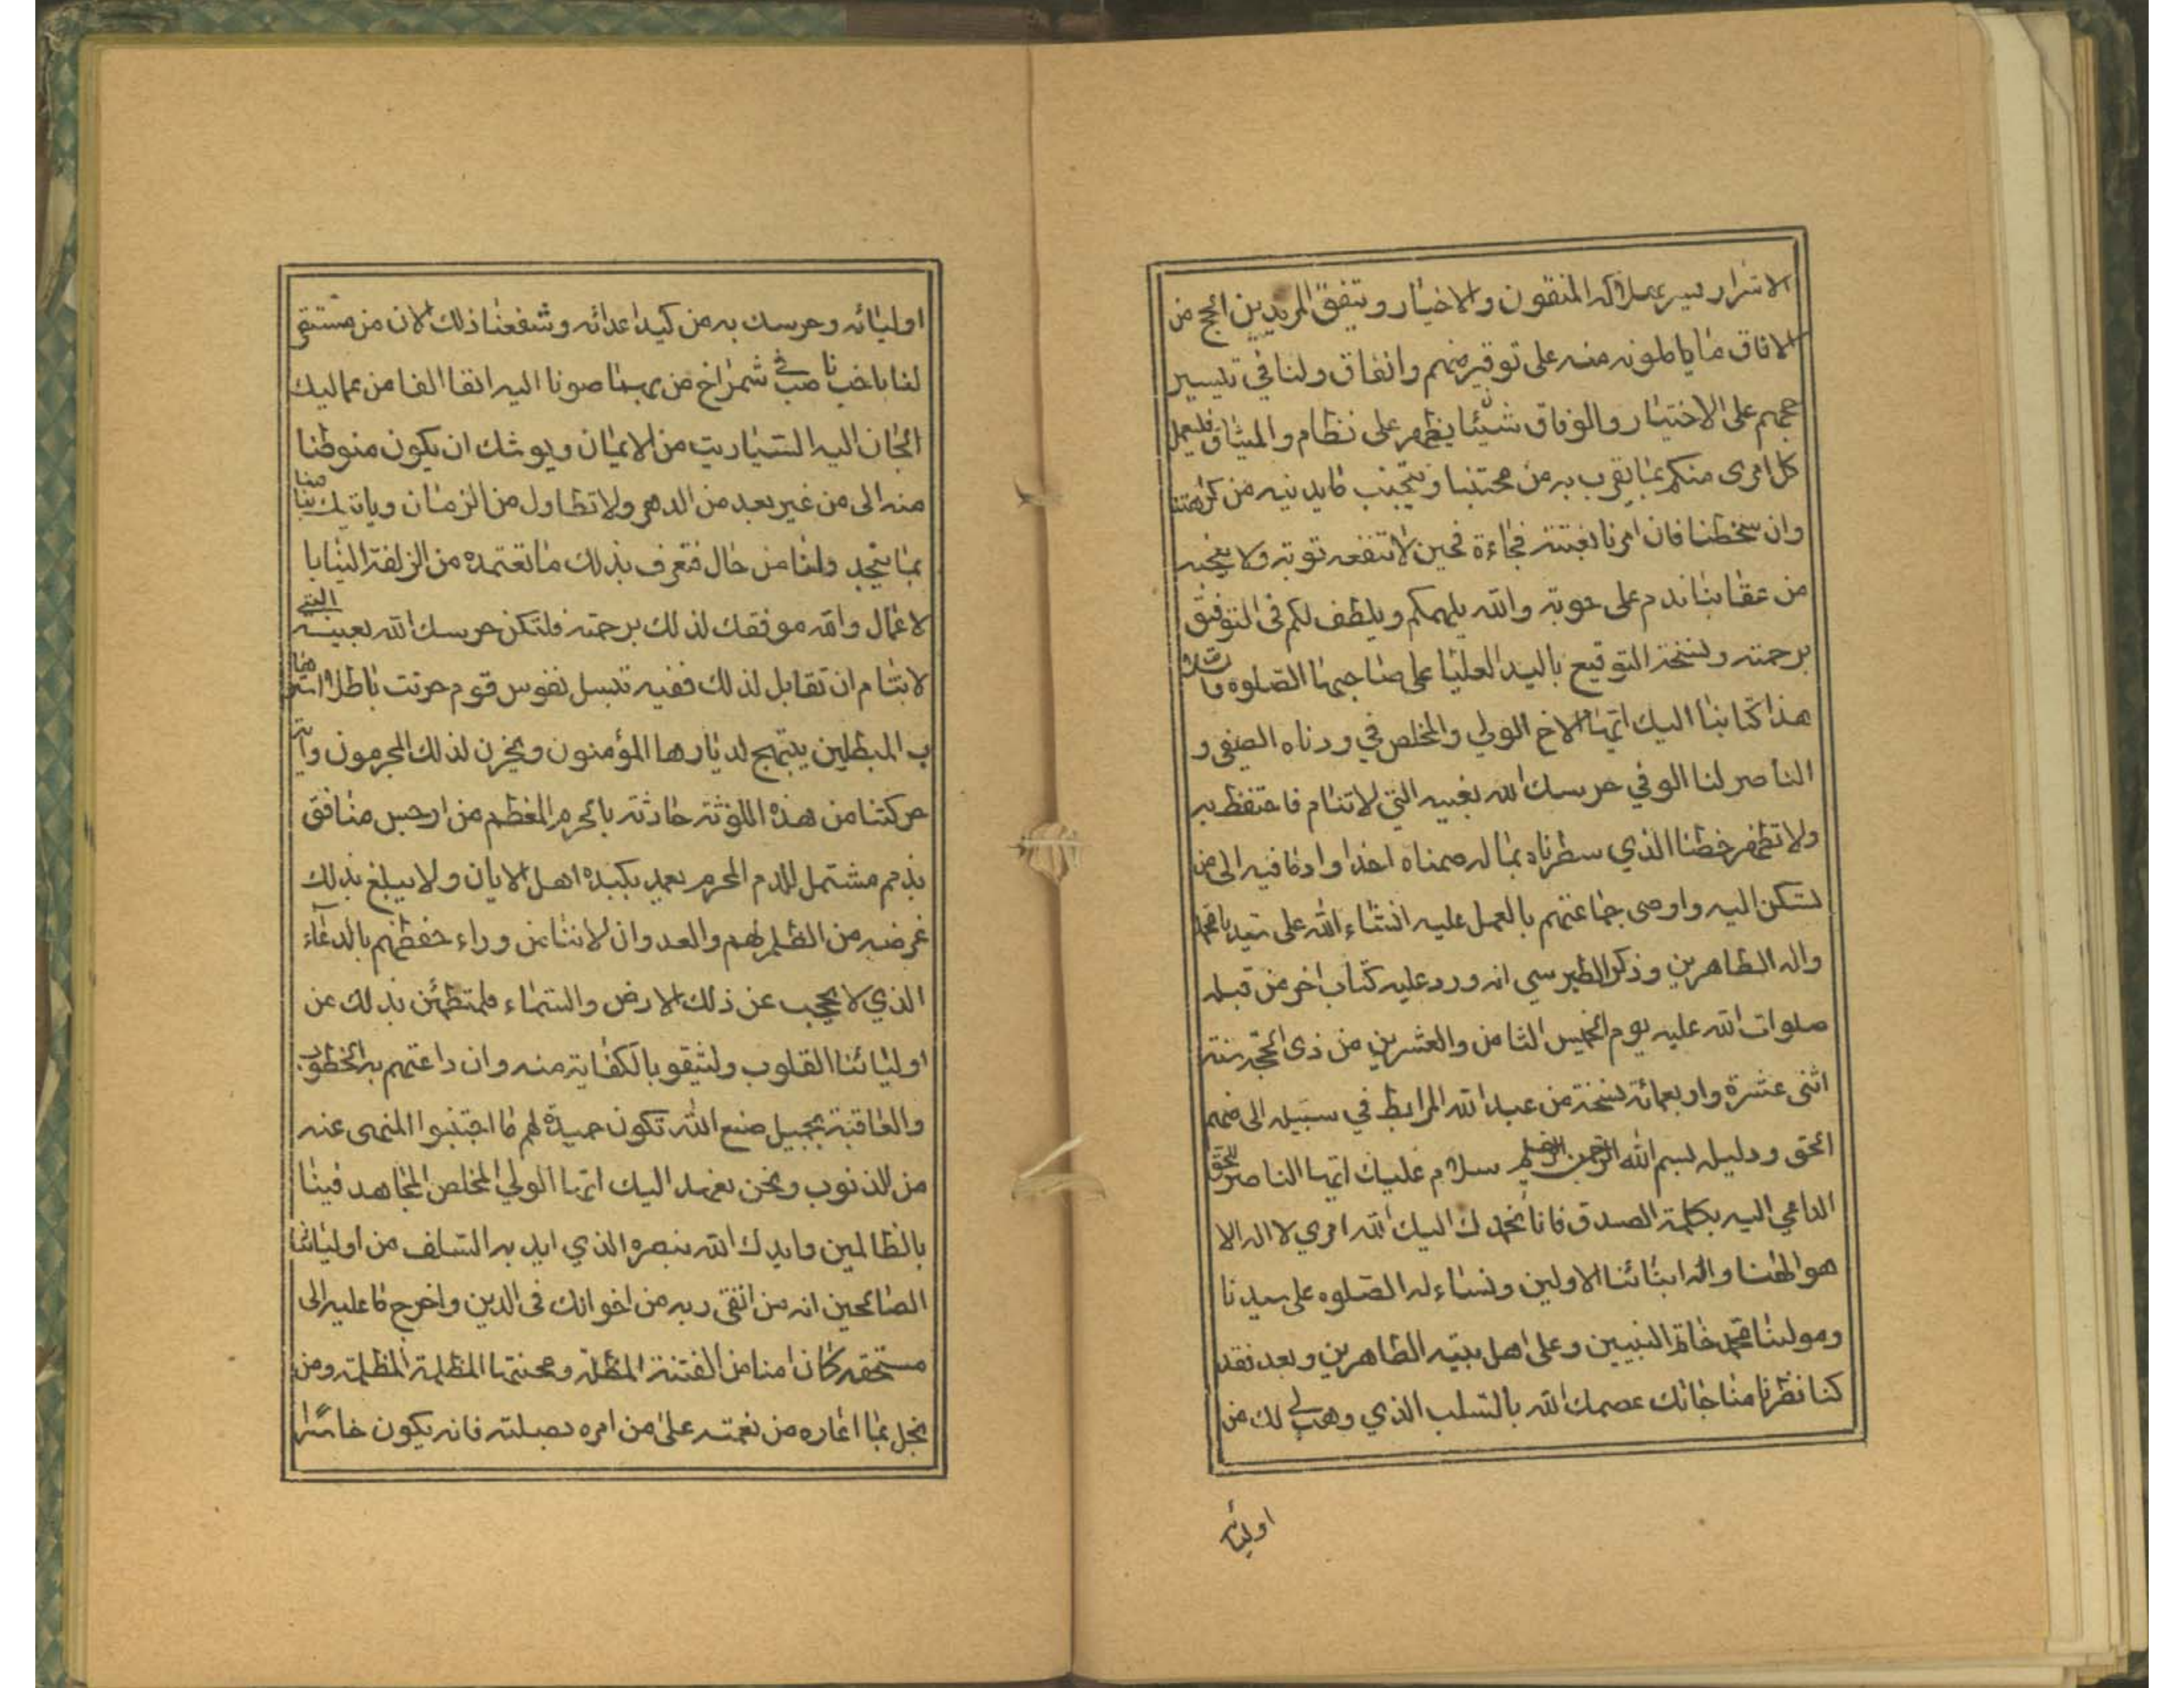 الاشرار يسر بهلاكه المتقون والاخيار ويتفق لمريدين الحج من
الافاق ما ياملونه منه على توفير منهم واتفاق ولنا في تيسير
حجهم على الاختيار والوفاق شيئا يظهر على نظام والميثاق فليعمل
كل امرى منكم بما يقرب به من محبتنا ويتجنب مايدنيه من كراهتنا
وان سخطنا فان امرنا بغتته فجاءة فحين لاتنفعه توبة ولا ينجيه
من عقابنا ندم على حوبة والله يلهمكم ويلطف لكم في التوفيق
برحمته ونسخة التوقيع باليد العليا على صاحبها الصلوه والسلام
هذا كتابنا اليك ايها الاخ الولي والمخلص في ودناه الصفي و
الناصر لنا الوفي حرسك الله بعينه التي لاتنام فاحتفظ به
ولا تظهر خطنا الذي سطرناه بما له ضمناه احدا واد مافيه الى من
تسكن اليه واوصى جماعتهم بالعمل عليه انشاء الله على سيدنا محمد
واله الطاهرين وذكر الطبرسي انه ورد عليه كتاب اخر من قبله
صلوات الله عليه يوم الخميس الثامن والعشرين من ذى الحجه سنة
اثنى عشرة واربعمائة نسخة من عبد الله المرابط في سبيله الى ملهم
الحق ودليله بسم الله الرحمن الرحيم سلام عليك ايها الناصر للحق
الداعي اليه بكلمة الصدق فانا نحمدك اليك الله امري لا اله الا
هو الهنا واله ابائنا الاولين ونساءله الصلوه على سيدنا
ومولينا محمد خاتم النبيين وعلى اهل بيته الطاهرين وبعد فقد
كنا نظرنا مناجاتك عصمك الله بالسلب الذي وهب لك من
اوليائه
اوليائه وحرسك به من كيد اعدائه وشفعنا ذلك الان من مستقر
لنا ناصب في شمراخ من بهما صونا اليه انفا الفا من عماليك
الجان اليه السباريت من الايمان ويوشك ان يكون منوطنا
منه الى من غير بعد من الدهر ولا تطاول من الزمان وياتيك نبا منا
بما يتجدد ولنا من حال فتعرف بذلك ما تعتمده من الزلفة الينا با
لاعمال والله موفقك لذلك برحمته فلتكن حرسك الله بعينه التي
لا تنام ان تقابل لذلك ففيه تبسل نفوس قوم حرثت باطلا
ب المبطلين يبتهج لديارها المؤمنون ويحزن لذلك المجرمون واية
حركتنا من هذه اللوثة حادثة بالحرم المعظم من ارجس منافق
بذمم مشتمل للدم المحرم يعمد بكبده اهل الايان ولا يبلغ بذلك
غرضه من الظلم لهم والعدوان لاننا من وراء حفظهم بالدعاء
الذي لا يحجب عن ذلك الارض والسماء فلمتطمئن بذلك عن
اوليائنا القلوب وليثقو بالكفاية منه وان داعتهم به الخطوب
والعاقبة بجميل صنع الله تكون حميدة لهم ما اجتنبوا المنهى عنه
من الذنوب ونحن نعهد اليك ايها الولي المخلص المجاهد فينا
بالظالمين وايدك الله بنصره الذي ايد به السلف من اوليائنا
الصالحين انه من اتقى ربه من اخوانك فى الدين واخرج ماعليه الى
مستحقه كان امنا من الفتنة المطلة ومحنتها المظلمة المظلمة ومن
بخل بما اعاره من نعمته على من امره بصلته فانه يكون خاسرا